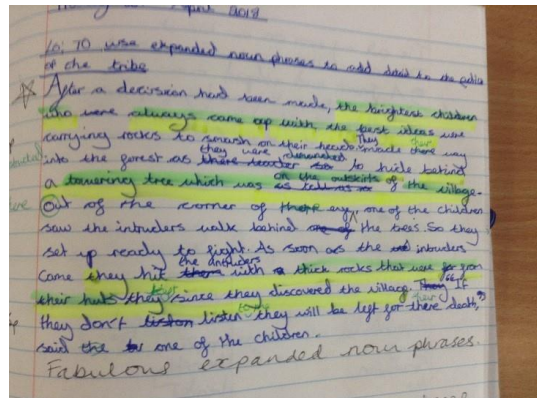 April 2018
Lo: To use expanded noun phrases to add detail to the
of the tribe
After a decision had been made, the brightest children
who were always came up with, the best ideas were
carrying rocks to smash on their heads. They made there way their
into the forest as there leader they were demanded to hide behind
a towering tree which was as tall as on the outskirts of the village.
Out of the corner of there eye, one of the children
saw the intruders walk behind of the trees. So they
set up ready to fight. As soon as the intruders
came they hit the intruders with thick rocks that were from
their huts since they discovered the village. "If
they don't listen they will be left for there death," their
said the one of the children.
Fabulous expanded noun phrases.